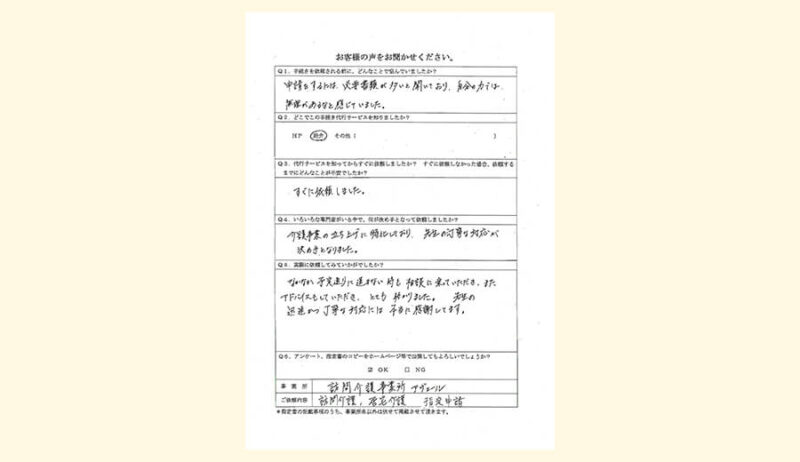 お客様の声をお聞かせください。
Q1．手続きを依頼される前に、どんなことで悩んでいましたか？
申請をするには、必要書類が多いと聞いており、自分の力では
限界があるなと感じていました。
Q2．どこでこの手続き代行サービスを知りましたか？
HP 紹介 その他（ ）
Q3．代行サービスを知ってからすぐに依頼しましたか？ すぐに依頼しなかった場合、依頼する
までにどんなことが不安でしたか？
すぐに依頼しました。
Q4．いろいろな専門家がいる中で、何が決め手となって依頼しましたか？
介護事業の立ち上げに特化しており、先生の丁寧な対応が
決めてとなりました。
Q5．実際に依頼してみていかがでしたか？
なかなか予定通りに進まない時も相談に乗っていただき、また
アドバイスもしていただき、とても助かりました。 先生の
迅速かつ丁寧な対応には本当に感謝してます。
Q6．アンケート、指定書のコピーをホームページ等で公開してもよろしいでしょうか？
☑ OK □ NG
事業所 訪問介護事業所 アヴェール
ご依頼内容 訪問介護，居宅介護 指定申請
＊指定書の記載事項のうち、事業所名以外は伏せて掲載させて頂きます。